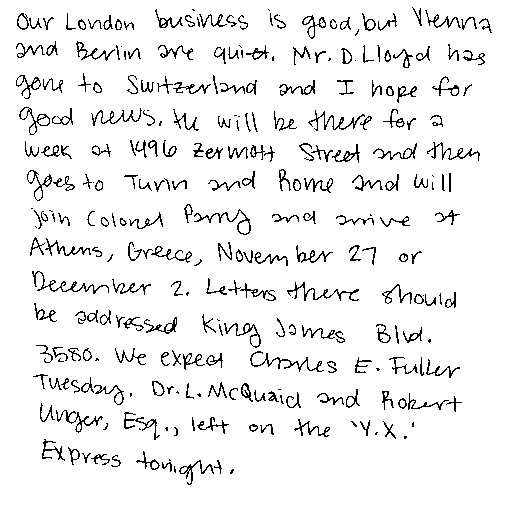 Our London business is good, but Vienna
and Berlin are quiet. Mr. D. Lloyd has
gone to Switzerland and I hope for
good news. He will be there for a
week at 1496 Zermott Street and then
goes to Turin and Rome and will
join Colonel Parry and arrive at
Athens, Greece, November 27 or
December 2. Letters there should
be addressed King James Blvd.
3580. We expect Charles E. Fuller
Tuesday. Dr. L. McQuaid and Robert
Unger, Esq., left on the 'Y.X.'
Express tonight.